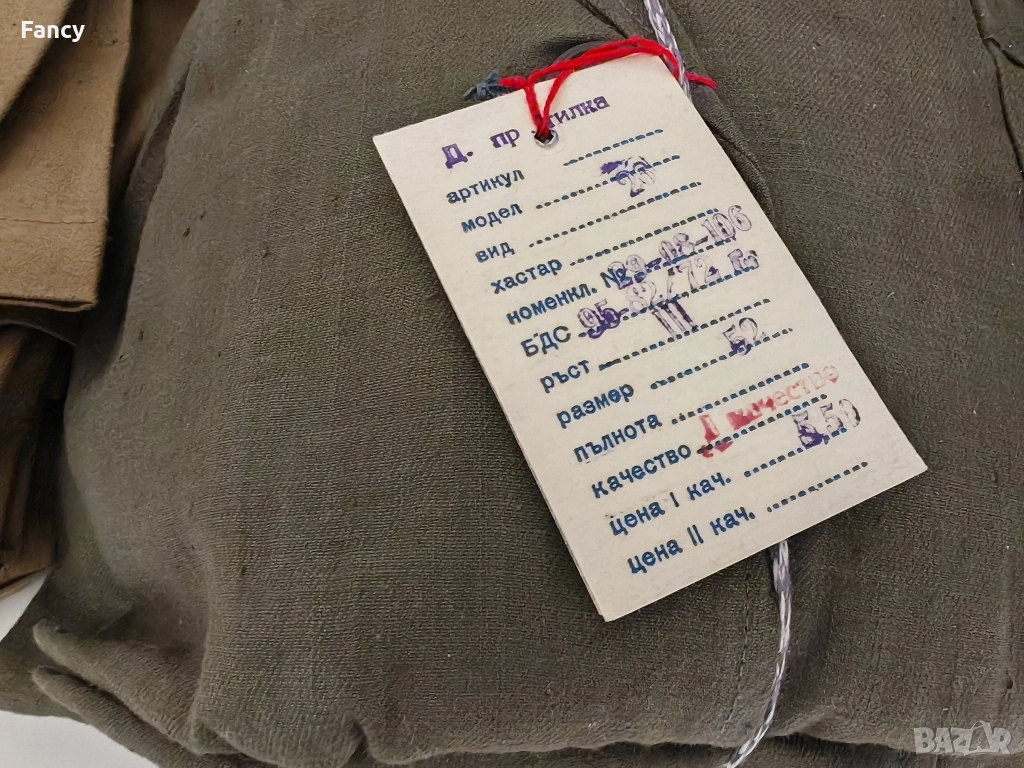 Fancy
Д. пр тилка
артикул
модел 26
вид
хастар
номенкл. № 29-08-106
БДС 95-82/72 г.
ръст III
размер 52
пълнота
качество I качество
цена I кач. 5,50
цена II кач.
BAZAR